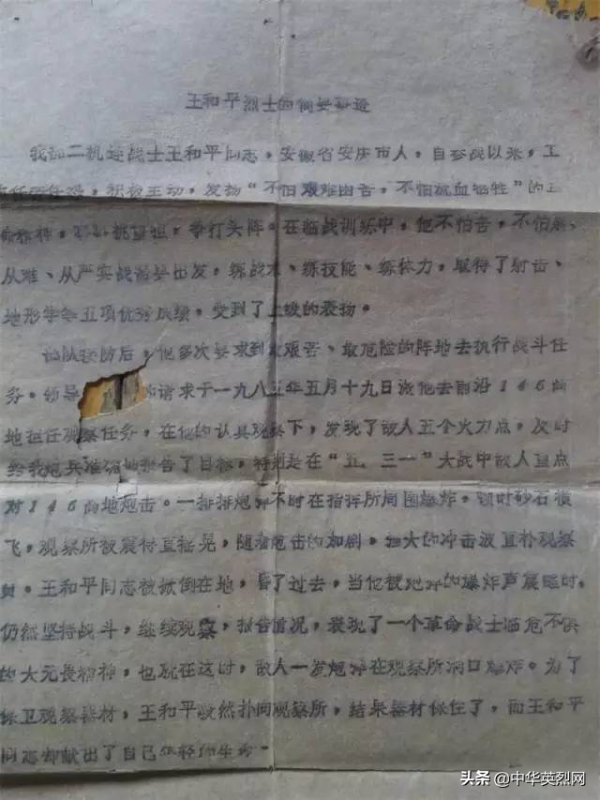 王和平烈士的简要事迹
我部二机连战士王和平同志，安徽省安庆市人，自参战以来，工
作积极主动，发扬“不怕艰难困苦，不怕流血牺牲”的
精神，挑重担，争打头阵。在临战训练中，他不怕苦，不怕累，
从难、从严实战需要出发，练战术、练技能、练体力，取得了射击、
地形学等五项优秀成绩，受到了上级的表扬。
部队接防后，他多次要求到最艰苦、最危险的阵地去执行战斗任
务。领导 请求于一九八五年五月十九日派他去前沿146高
地担任观察任务，在他的认真观察下，发现了敌人五个火力点，及时
给我炮兵准确地报告了目标，特别是在“五、三一”大战中敌人重点
对146高地炮击。一排排炮弹不时在指挥所周围爆炸。顿时砂石横
飞，观察所被震得直摇晃，随着炮击的加剧。强大的冲击波直扑观察
所。王和平同志被掀倒在地，昏了过去，当他被炮弹的爆炸声震醒时，
仍然坚持战斗，继续观察，报告情况，表现了一个革命战士临危不惧
的大无畏精神，也就在这时，敌人一发炮弹在观察所洞口爆炸。为了
保卫观察器材，王和平毅然扑向观察所，结果器材保住了，而王和平
同志却献出了自己年轻的生命。
头条 @中华英烈网